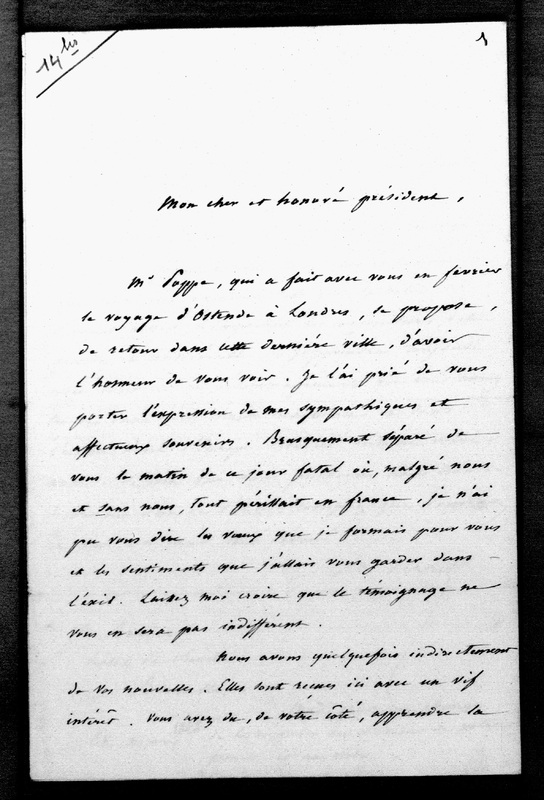 14 bis
1
Mon cher et honoré président,
Mr Poppe, qui a fait avec vous en fevrier
le voyage d'Ostende à Londres, se propose,
de retour dans cette dernière ville, d'avoir
l'honneur de vous voir. Je l'ai prié de vous
porter l'expression de mes sympathiques et
affectueux souvenirs. Brusquement séparé de
vous le matin de ce jour fatal où, malgré nous
et sans nous, tout périssait en france, je n'ai
pu vous dire les vœux que je formais pour vous
et les sentiments que j'allais vous garder dans
l'exil. Laissez moi croire que le témoignage ne
vous en sera pas indifférent.
Nous avons quelquefois indirectement
de vos nouvelles. Elles sont reçues ici avec un vif
intérêt. Vous avez du, de votre côté, apprendre la